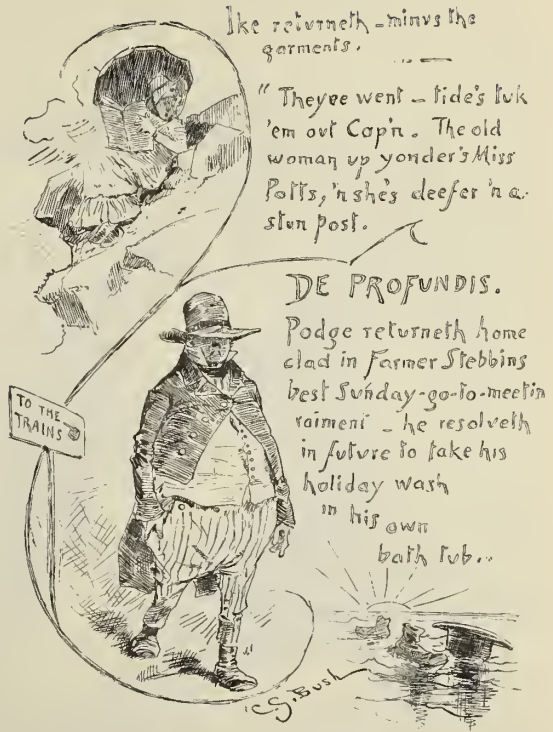 Ike returneth - minus the
garments.
" Theyre went - tide's tuk
'em out Cap'n. The old
woman up yonder's Miss
Potts, 'n she's deefer 'n a
stun post.
DE PROFUNDIS.
Podge returneth home
clad in Farmer Stebbins
best Sunday-go-to-meetin
raiment - he resolveth
in future to take his
holiday wash
in his own
bath tub..
TO THE
TRAINS
C.G. Bush